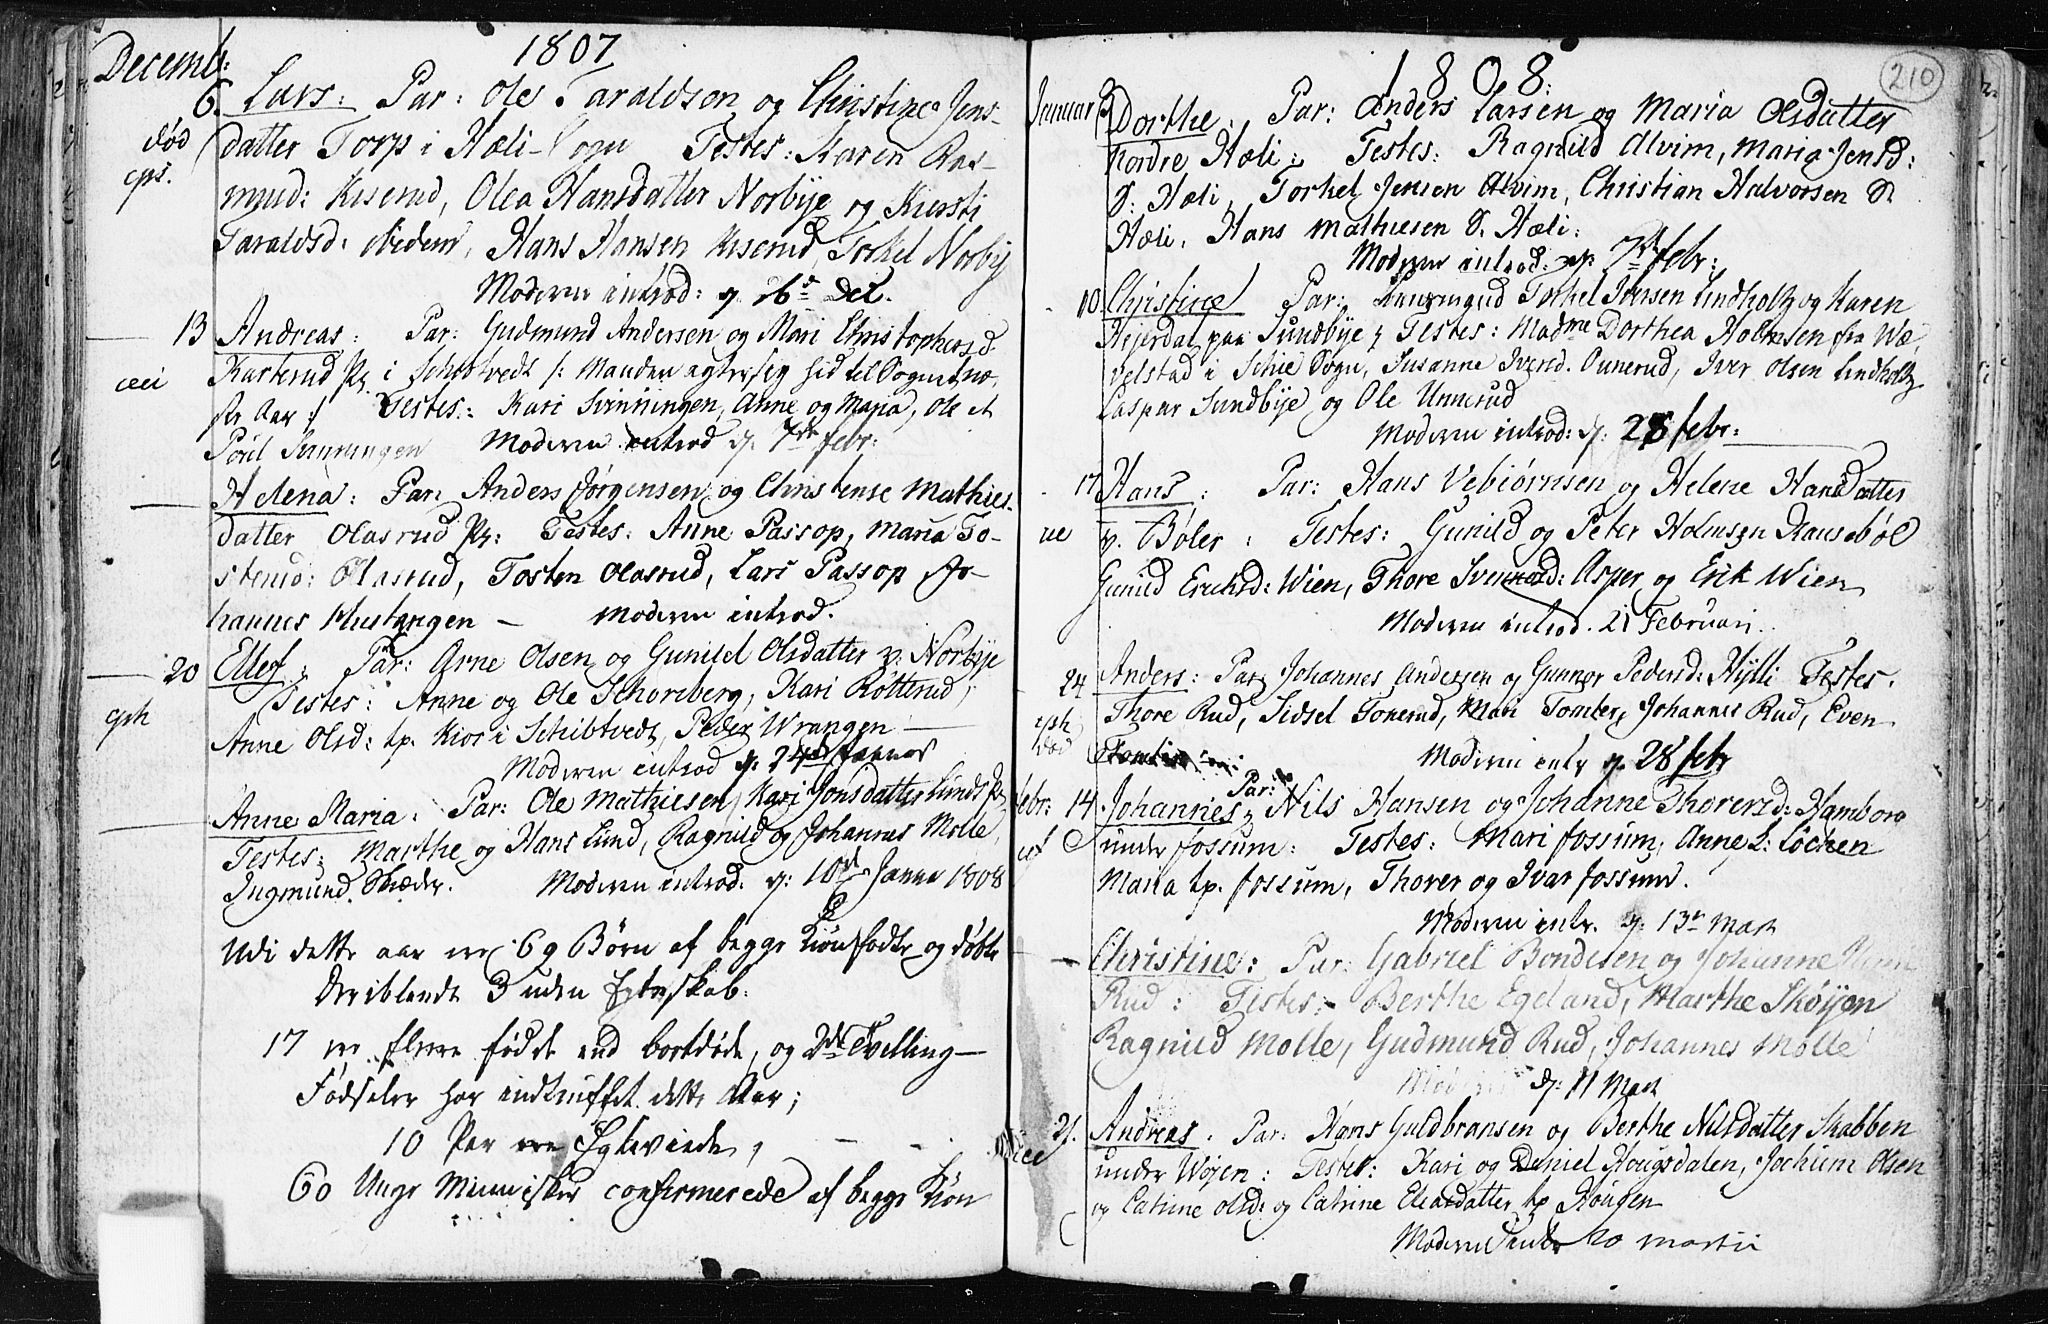 Decemb:
1807
6. Lars: Par: Ole Taraldson og Christine Jens-
død
datter Torp i Hæli-Sogn Testes: Karen Ras-
musd: Kiserud, Olea Hansdatter Norbye og Kiersti
Taraldsd: ibidem, Hans Hansen Kiserud, Torkel Norby
Moderen introd: d. 26 Dec.
13 Andreas: Par: Gudmund Andersen og Mari Christophersd
Karterud Pl. i Schibtvedt /: Manden agter sig hid til Sognet næ-
ste Aar :/ Testes: Kari Svinningen, Anne og Maria, Ole et
Poul Svinningen Moderen introd d. 7de febr:
Helena: Par: Anders Jørgensen og Christense Mathies-
datter Olasrud Pl: Testes: Anne Passop, Maria To-
stensd: Olasrud, Tosten Olasrud, Lars Passop Jo-
hannes Mustangen — Moderen introd.
20 Ellef: Par: Arne Olsen og Gunild Olsdatter v: Norbye
Testes: Anne og Ole Thoreberg, Kari Rötterud,
Anne Olsd: tp. Kios i Schibtvedt, Peder Wrangen
Moderen introd d. 24de Januar
Anne Maria: Par: Ole Mathiesen, Kari Jonsdatter Lunds Pl.
Testes: Marthe og Hans Lund, Ragnild og Johannes Molle,
Ingmund Moderen introd: d: 10de Janu 1808
Udi dette aar ere 69 Børn af begge Kiøn fødte og døbte
Deriblandt 3 uden Egteskab.
17 ere flere fødde end bortdøde, og 2de Tvilling—
Fødseler har indtruffet dette Aar;
10 Par ere Egteviede,
60 Unge Mennisker confirmerede af begge Kiøn
1808.
210
Januar 3 Dorthe. Par: Anders Larsen og Maria Olsdatter
Nordre Hæli: Testes: Ragnild Alvim, Maria Jensd:
S: Hæli, Torkel Jensen Alvim, Christian Halvorsen S
Hæli, Hans Mathiesen S. Hæli:
Moderen introd: d. 7de febr:
10 Christine Par: Torkel Jensen Lindholt og Karen
Hejerdal paa Sundbye Testes: Madme Dorthea Holmsen fra Wæ
velstad i Schie Sogn, Susanne Iversd. Ounerud, Iver Olsen Lindholt
Caspar Sundbye og Ole Unnerud
Moderen introd: d: 28 febr:
17 Hans: Par: Hans Vebiørnsen og Helene Hansdatter
v. Bøler: Testes: Gunild og Peter Holmsen Hausebøl
Gunild Ericksd: Wien, Thore Asper og Erik Wien
Moderen introd. 21 Februari.
24 Anders: Par: Johannes Andersen og Gunnor Pedersd: Hylli Testes.
Thore Rud, Sidsel Tokerud, Mari Tomter, Johannes Rud, Even
død
Moderen intr d. 28 febr
Par:
febr: 14 Johannes: Nils Hansen og Johanne Thorersd: Hamborg
under Fossum: Testes: Mari Fossum, Anne L: Løcken
Maria tp. Fossum, Thorer og Ivar Fossum.
Moderen intr. d: 13de Mart
Christine: Par: Gabriel Bondesen og Johanne
Rud: Testes: Berthe Egeland, Marthe Skøyen
Ragnild Molle, Gudmund Rud, Johannes Molle
d: 11 Mart
21. Andreas. Par: Hans Guldbransen og Berthe Nilsdatter Skabben
under Wøyen: Testes: Kari og Deniel Hougsdalen, Jochum Olsen
og Catrine Olsd: og Catrine tp Hougen
Moderen intr 20 martii